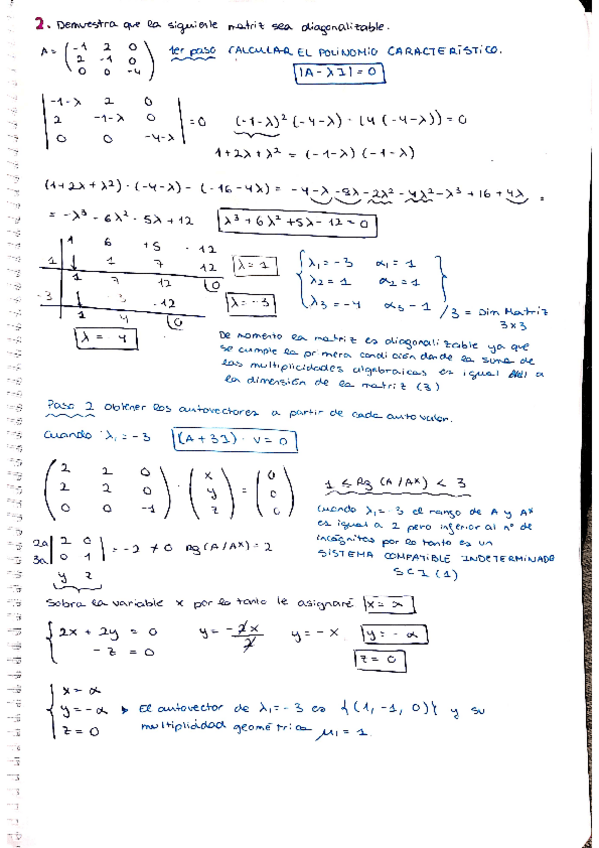 2. Demuestra que la siguiente matriz sea diagonalizable.
A = (-1 2 0 / 2 -1 0 / 0 0 -4) 1er paso CALCULAR EL POLINOMIO CARACTERÍSTICO.
|A - λI| = 0
|-1-λ 2 0|
|2 -1-λ 0| = 0 (-1-λ)² (-4-λ) - (4(-4-λ)) = 0
|0 0 -4-λ|
1+2λ+λ² = (-1-λ)(-1-λ)
(1+2λ+λ²)·(-4-λ) - (-16-4λ) = -4-λ-8λ-2λ²-4λ²-λ³+16+4λ =
= -λ³-6λ²-5λ+12 λ³+6λ²+5λ-12=0
1 6 +5 -12
1 1 7 12 λ=1
1 7 12 0
-3 -3 -12 λ=-3
1 4 0
λ = 4
λ₁=-3 α₁=1
λ₂=1 α₂=1
λ₃=-4 α₃-1 / 3 = Dim Matriz
3x3
De momento la matriz es diagonalizable ya que
se cumple la primera condición donde la suma de
las multiplicidades algebraicas es igual a
la dimensión de la matriz (3)
Paso 2 obtener los autovectores a partir de cada autovalor.
Cuando λ₁=-3 (A+3I)·v=0
(2 2 0) (x) (0)
(2 2 0) · (y) = (0)
(0 0 -1) (z) (0)
1 ≤ Rg (A/A*) < 3
Cuando λ₁=-3 el rango de A y A*
es igual a 2 pero inferior al nº de
incógnitas por lo tanto es un
SISTEMA COMPATIBLE INDETERMINADO
SCI (1)
2a |2 0|
3a |0 1| = -2 ≠ 0 Rg (A/A*) = 2
y z
Sobra la variable x por lo tanto le asignaré x = α
2x + 2y = 0 y = -2x/2 y = -x y = -α
-z = 0 z = 0
x = α
y = -α El autovector de λ₁=-3 es {(1,-1,0)} y su
z = 0 multiplicidad geométrica μ₁=1.